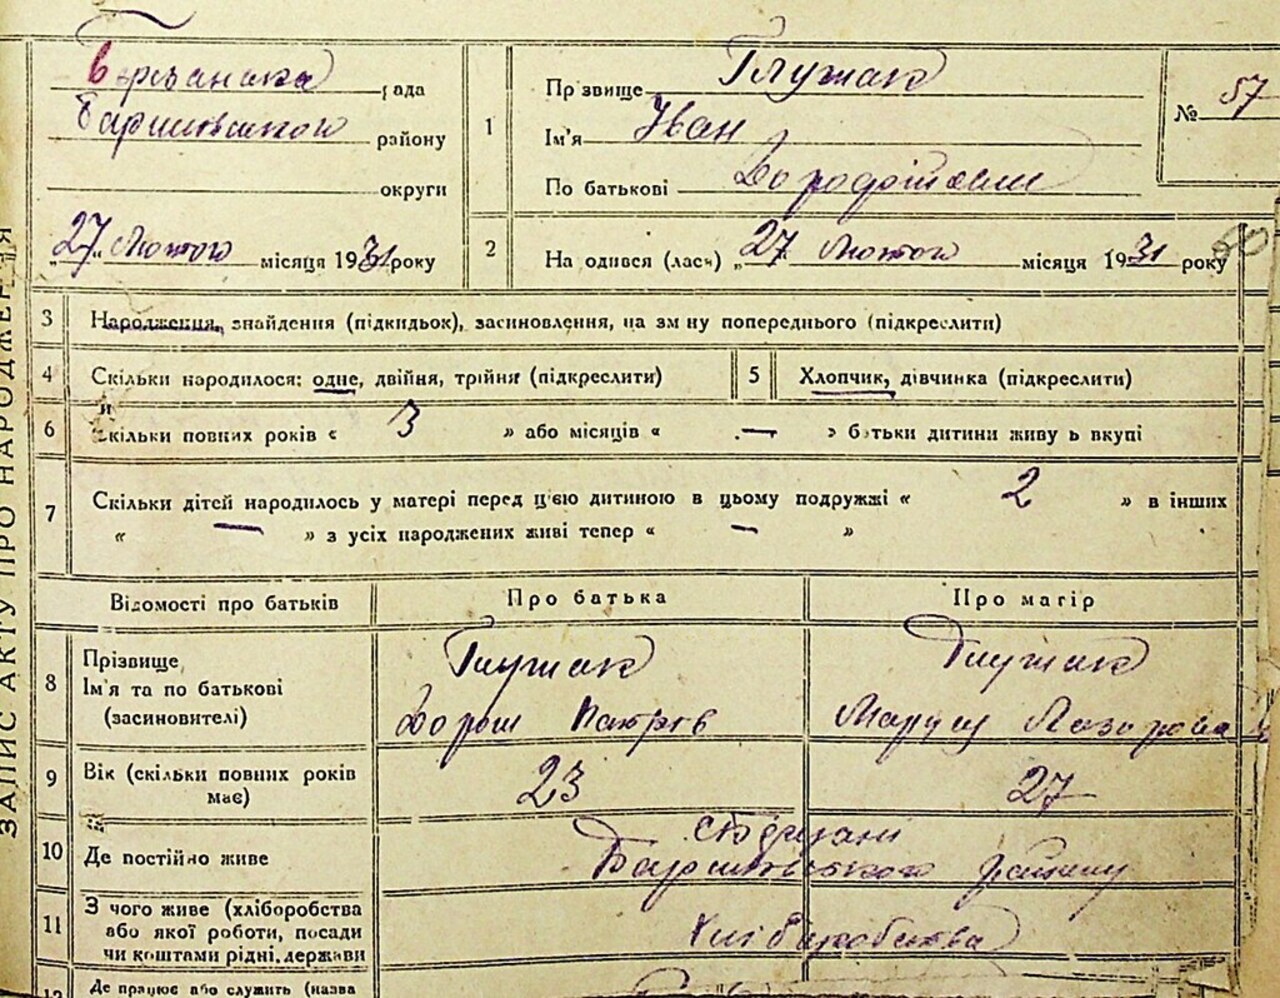 рада
Баришівського району
округи
„27“ Лютого місяця 1931 року
1
Прізвище Глушак
Ім'я Іван
По батькові Дорофійович
№ 57
2
На одився (лась) „27 Лютого місяця 1931 року
ЗАПИС АКТУ ПРО НАРОДЖЕННЯ
3 Народження, знайдення (підкидьок), засиновлення, на зм ну попереднього (підкреслити)
4 Скільки народилося: одне, двійня, трійня (підкреслити)
5 Хлопчик, дівчинка (підкреслити)
6 Скільки повних років « 3 » або місяців « — » батьки дитини живу ь вкупі
7 Скільки дітей народилось у матері перед цією дитиною в цьому подружжі « 2 » в інших
« — » з усіх народжених живі тепер « — »
Відомості про батьків Про батька Про матір
8 Прізвище,
Ім'я та по батькові
(засиновителі)
Глушак
Дорош Петрів
Глушак
Маруся Лазорова
9 Вік (скільки повних років
має)
23 27
10 Де постійно живе
Баришівського району
11 З чого живе (хліборобства
або якої роботи, посади
чи коштами рідні, держави
Хліборобства
12 Де працює або служить (назва